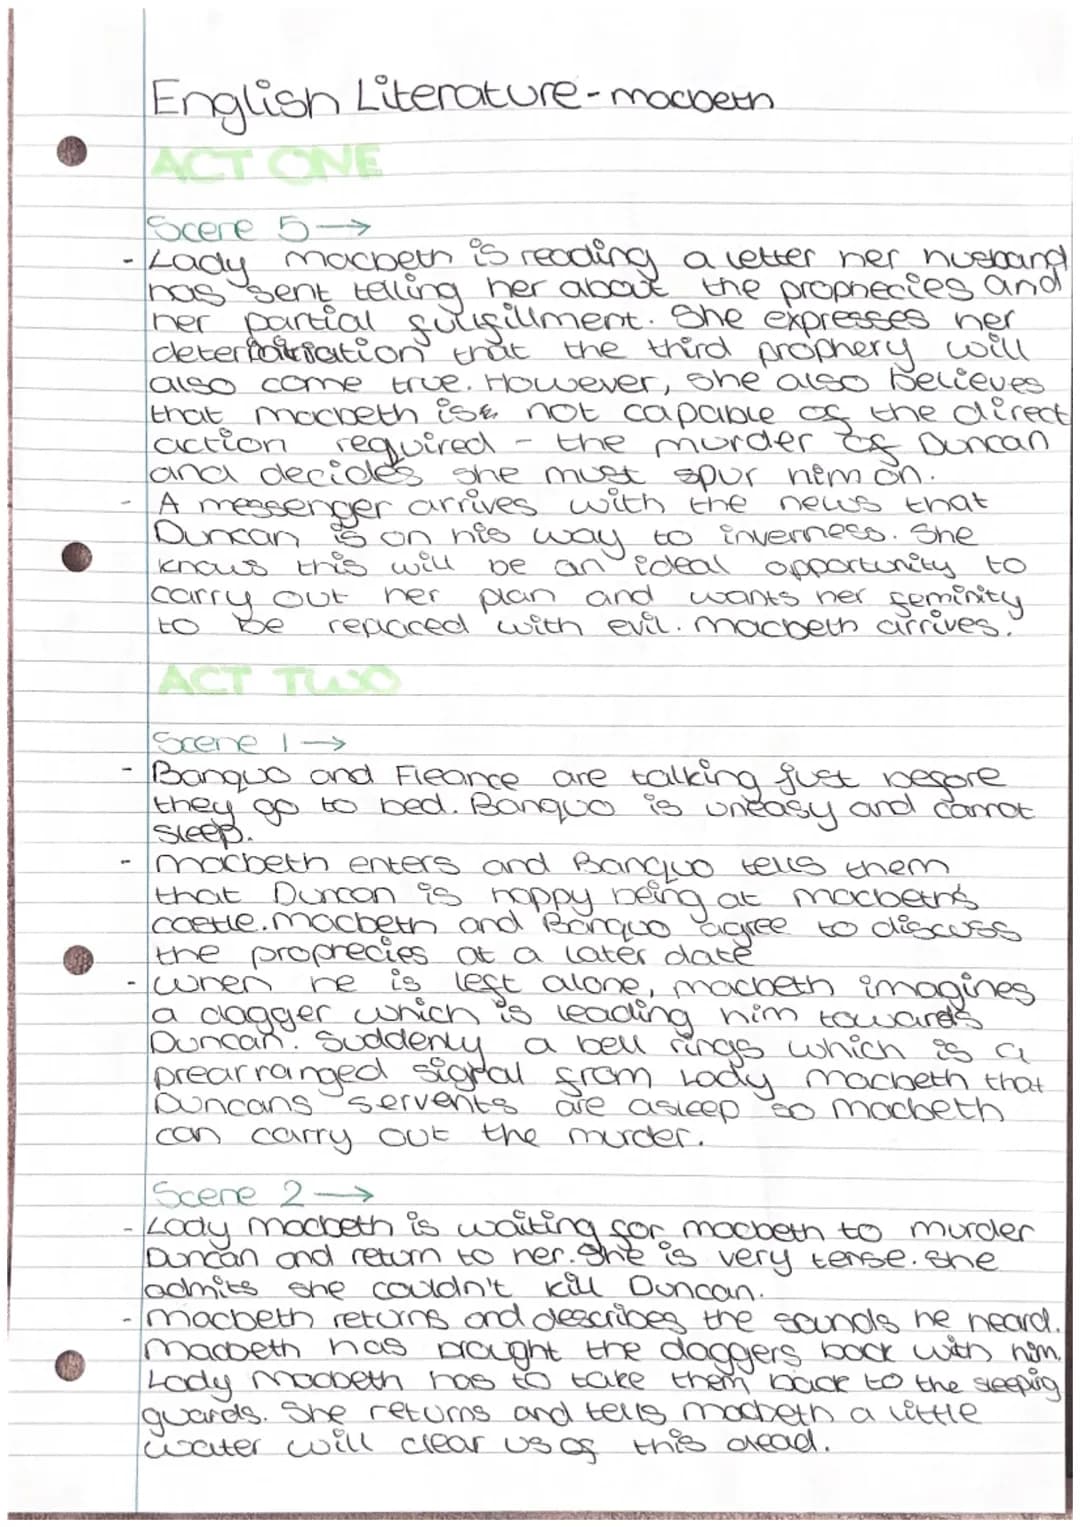 English Literature - macbeth
ACT ONE
Scene 5 →
- Lady macbeth is reading a letter her husband
has sent telling her about the prophecies and
her partial fulfillment. She expresses her
determination that the third prophery will
also come true. However, she also believes
that macbeth is not capable of the direct
action required - the murder of Duncan
and decides she must spur him on.
- A messenger arrives with the news that
Duncan is on his way to inverness. She
knows this will be an ideal opportunity to
carry out her plan and wants her feminity
to be repaced with evil. macbeth arrives.
ACT TWO
Scene 1 →
- Banquo and Fleance are talking just before
they go to bed. Banquo is uneasy and cannot
sleep.
- macbeth enters and Banquo tells them
that Duncan is happy being at macbeth's
castle. macbeth and Banquo agree to discuss
the prophecies at a later date
- when he is left alone, macbeth imagines
a dagger which is leading him towards
Duncan. Suddenly a bell rings which is a
prearranged signal from Lady macbeth that
Duncans servents are asleep so macbeth
can carry out the murder.
Scene 2 →
- Lady macbeth is waiting for macbeth to murder
Duncan and return to her. She is very tense. She
admits she couldn't kill Duncan.
- macbeth returns and describes the sounds he heard.
Macbeth has brought the daggers back with him.
Lady Macbeth has to take them back to the sleeping
guards. She returns and tells macbeth a little
water will clear us of this dead.